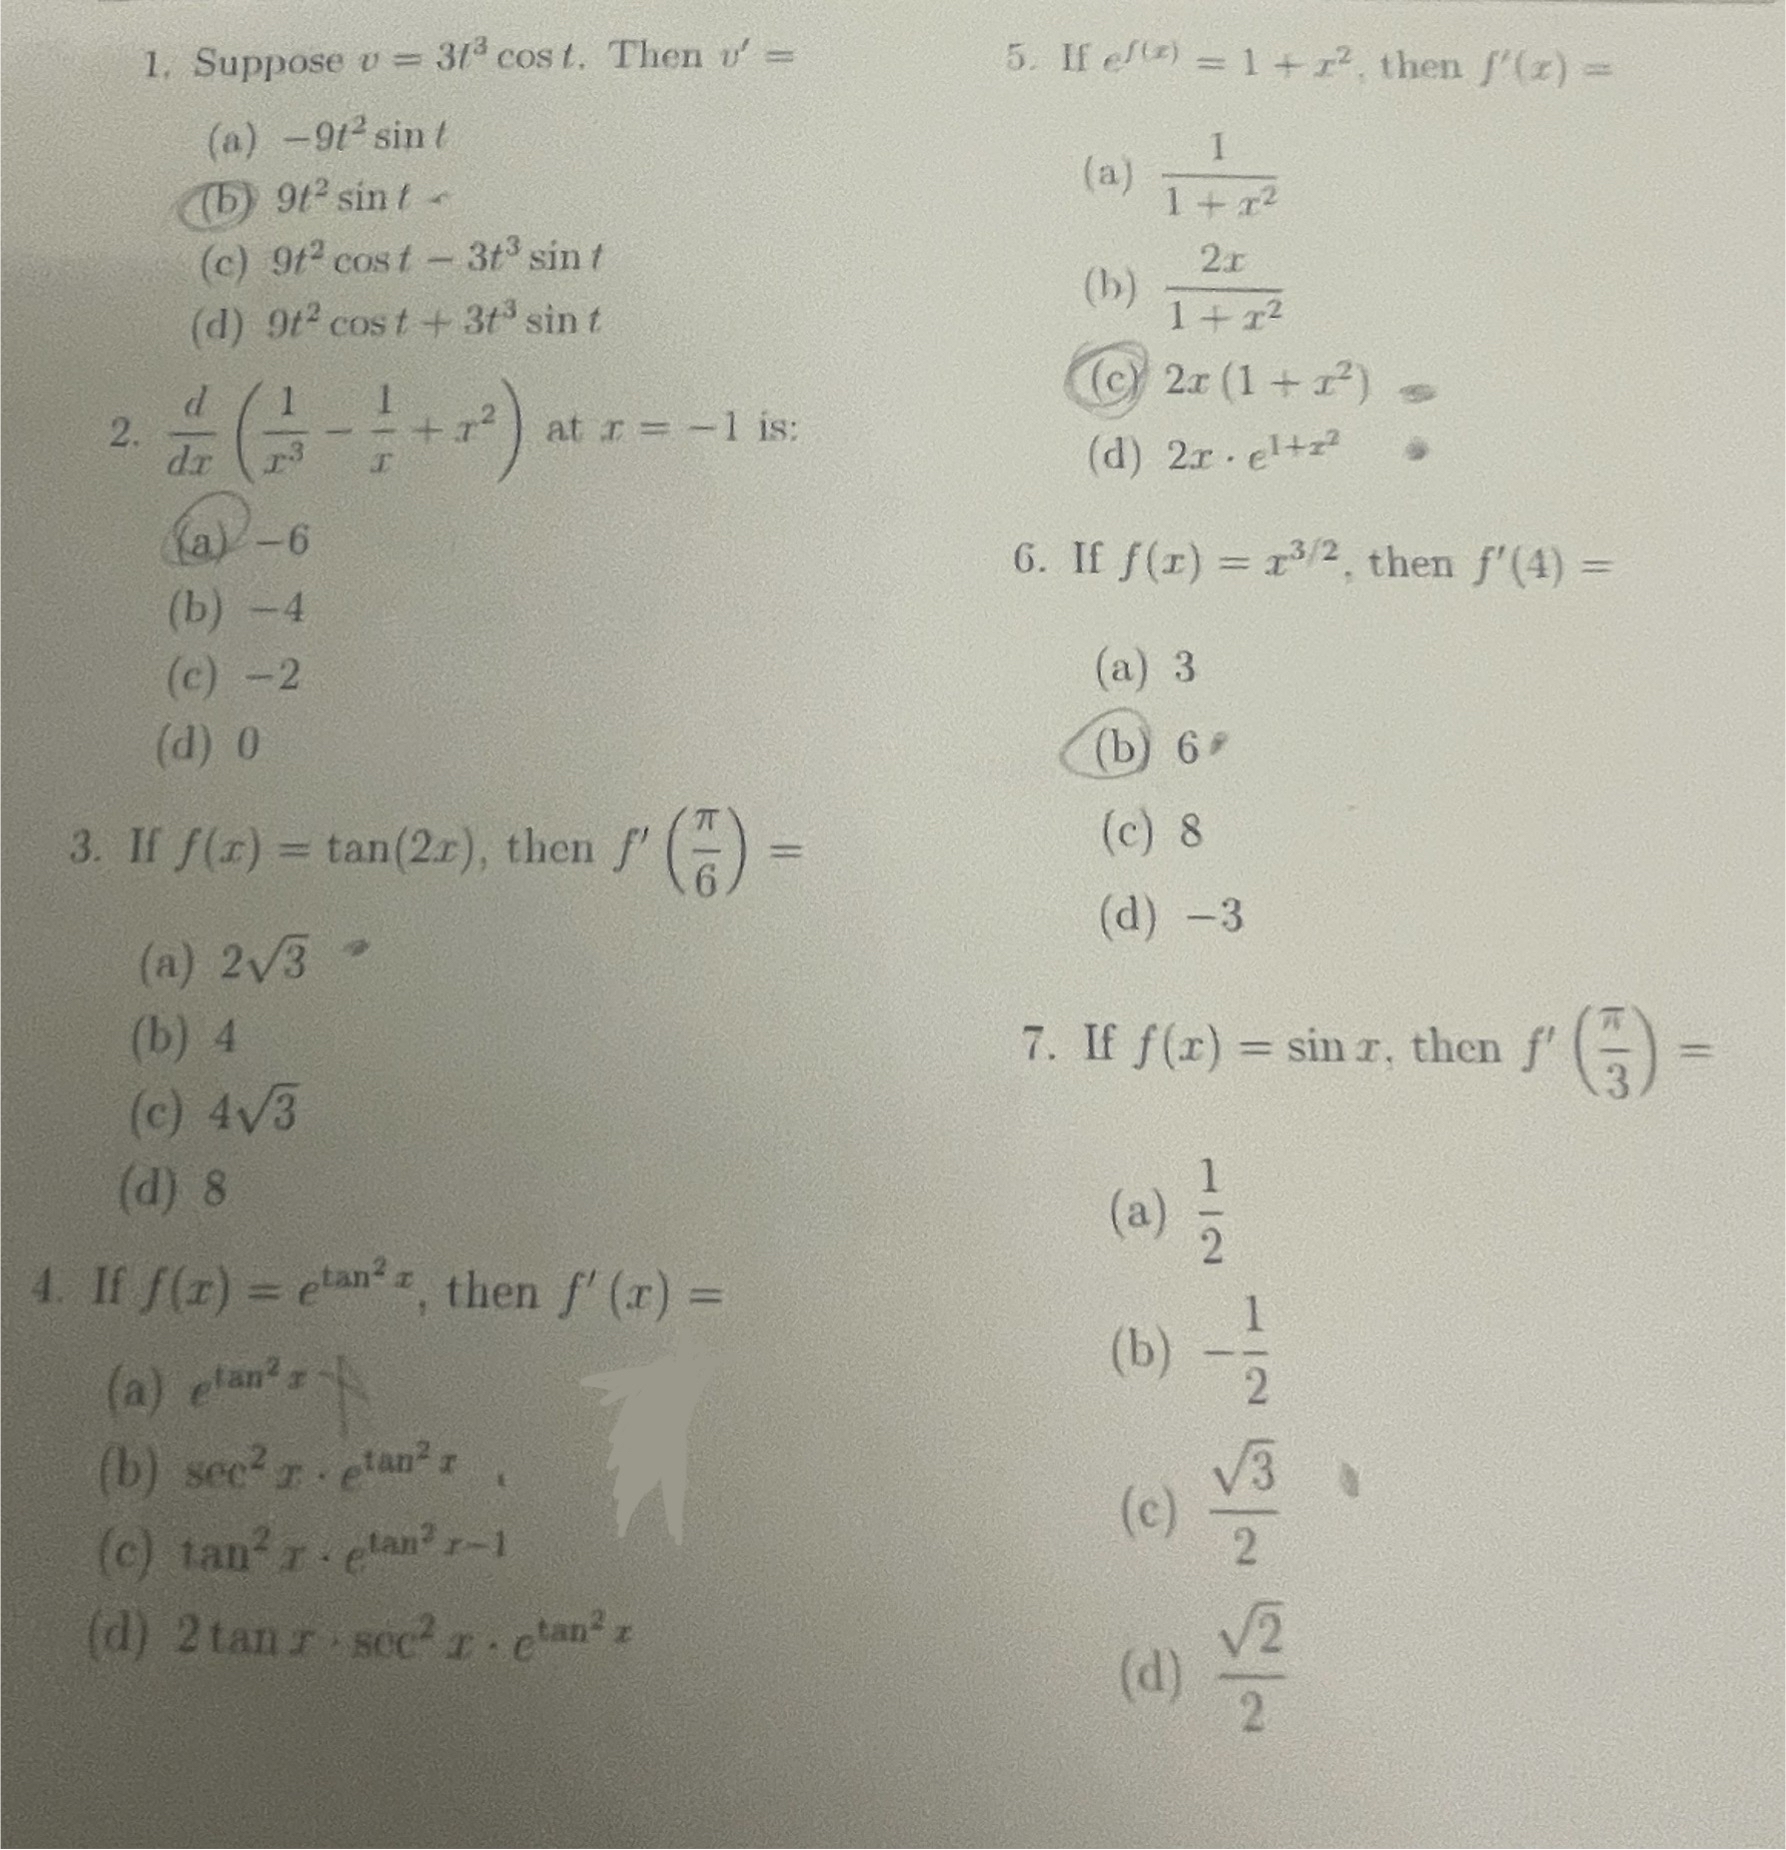 1. Suppose v = 3t³ cos t. Then v′ =
(a) −9t² sin t
(b) 9t² sin t
(c) 9t² cos t − 3t³ sin t
(d) 9t² cos t + 3t³ sin t
2. d/dx (1/x³ − 1/x + x²) at x = −1 is:
(a) −6
(b) −4
(c) −2
(d) 0
3. If f(x) = tan(2x), then f′(π/6) =
(a) 2√3
(b) 4
(c) 4√3
(d) 8
4. If f(x) = e^(tan² x), then f′(x) =
(a) e^(tan² x)
(b) sec² x · e^(tan² x)
(c) tan² x · e^(tan² x−1)
(d) 2 tan x · sec² x · e^(tan² x)
5. If e^(f(x)) = 1 + x², then f′(x) =
(a) 1/(1 + x²)
(b) 2x/(1 + x²)
(c) 2x (1 + x²)
(d) 2x · e^(1+x²)
6. If f(x) = x^(3/2), then f′(4) =
(a) 3
(b) 6
(c) 8
(d) −3
7. If f(x) = sin x, then f′(π/3) =
(a) 1/2
(b) −1/2
(c) √3/2
(d) √2/2